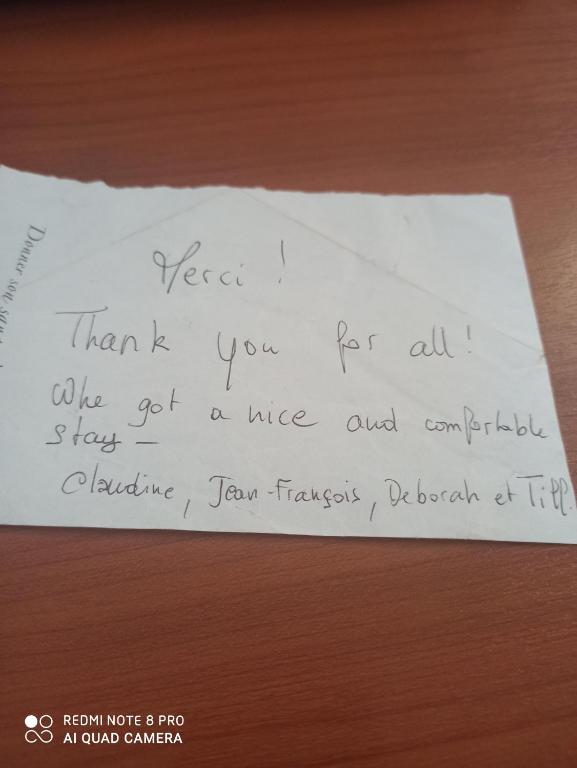 Merci !
Thank you for all !
Whe got a nice and comfortable
stay –
Claudine, Jean-François, Deborah et Till.
Donner son
REDMI NOTE 8 PRO
AI QUAD CAMERA